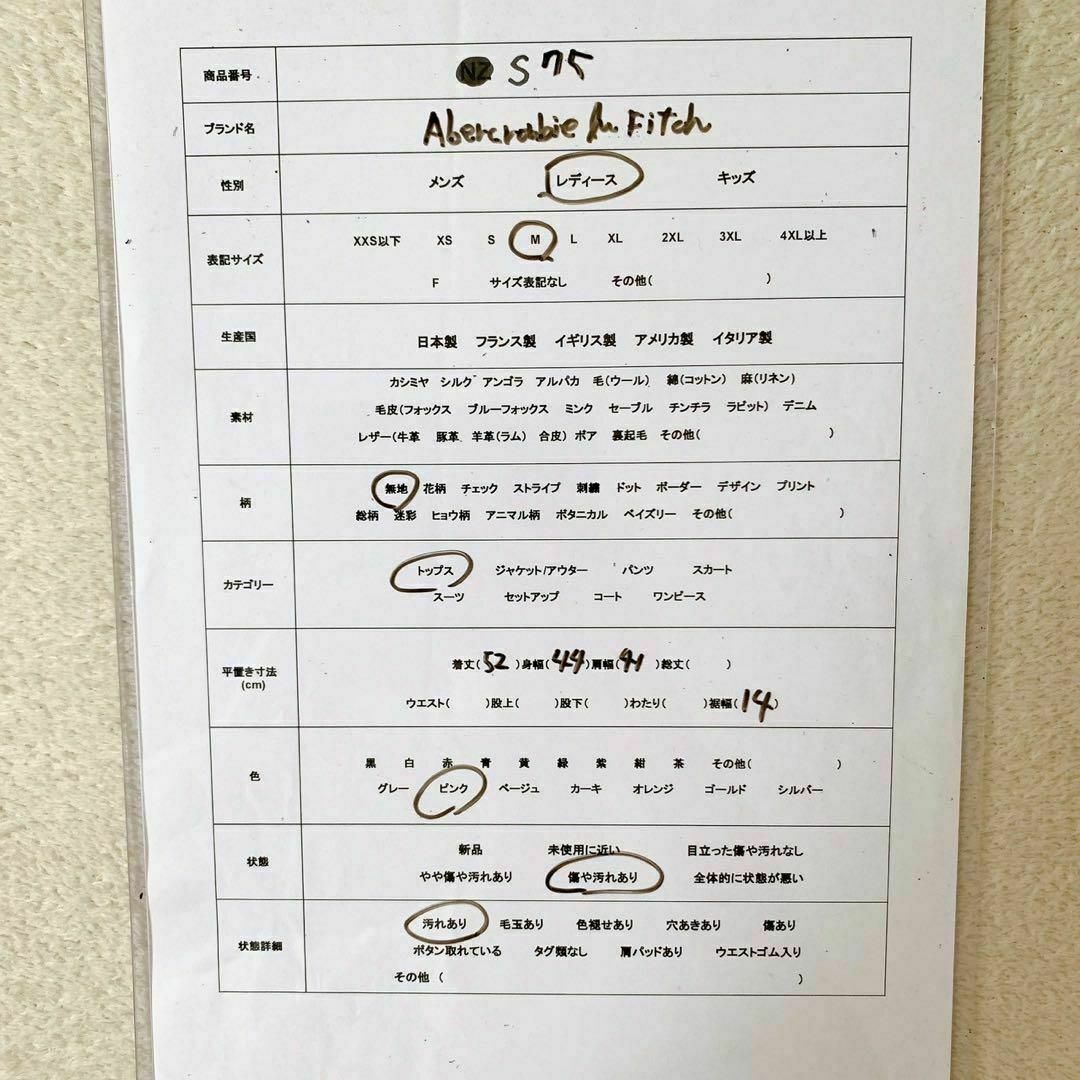 商品番号 NZ S 75
ブランド名 Abercrombie Fitch
性別 メンズ レディース キッズ
表記サイズ XXS以下 XS S M L XL 2XL 3XL 4XL以上
F サイズ表記なし その他( )
生産国 日本製 フランス製 イギリス製 アメリカ製 イタリア製
素材 カシミヤ シルク アンゴラ アルパカ 毛(ウール) 綿(コットン) 麻(リネン)
毛皮(フォックス ブルーフォックス ミンク セーブル チンチラ ラビット) デニム
レザー(牛革 豚革 羊革(ラム) 合皮) ボア 裏起毛 その他( )
柄 無地 花柄 チェック ストライプ 刺繍 ドット ボーダー デザイン プリント
総柄 迷彩 ヒョウ柄 アニマル柄 ボタニカル ペイズリー その他( )
カテゴリー トップス ジャケット/アウター パンツ スカート
スーツ セットアップ コート ワンピース
平置き寸法 (cm) 着丈(52)身幅(44)肩幅(41)総丈( )
ウエスト( )股上( )股下( )わたり( )裾幅(14)
色 黒 白 赤 青 黄 緑 紫 紺 茶 その他( )
グレー ピンク ベージュ カーキ オレンジ ゴールド シルバー
状態 新品 未使用に近い 目立った傷や汚れなし
やや傷や汚れあり 傷や汚れあり 全体的に状態が悪い
状態詳細 汚れあり 毛玉あり 色褪せあり 穴あきあり 傷あり
ボタン取れている タグ類なし 肩パッドあり ウエストゴム入り
その他 ( )